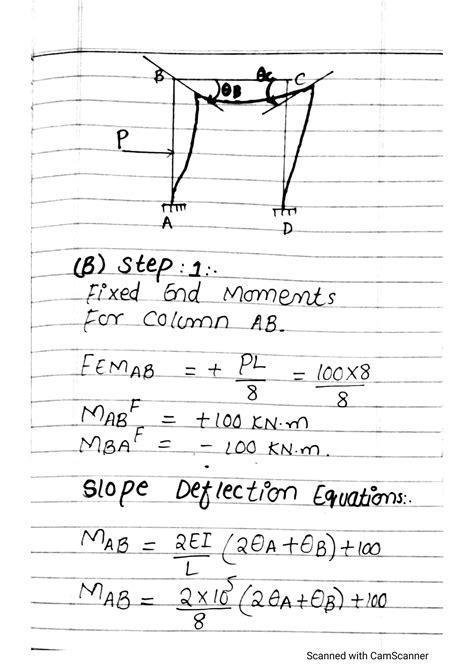 B θB θc C
P
A D
(B) Step : 1 :.
Fixed End Moments
For Column AB.
FEMAB = + PL/8 = 100×8/8
MAB^F = +100 KN·m
MBA^F = - 100 KN·m.
Slope Deflection Equations:.
MAB = 2EI/L (2θA+θB)+100
MAB = 2×10^5/8 (2θA+θB)+100
Scanned with CamScanner